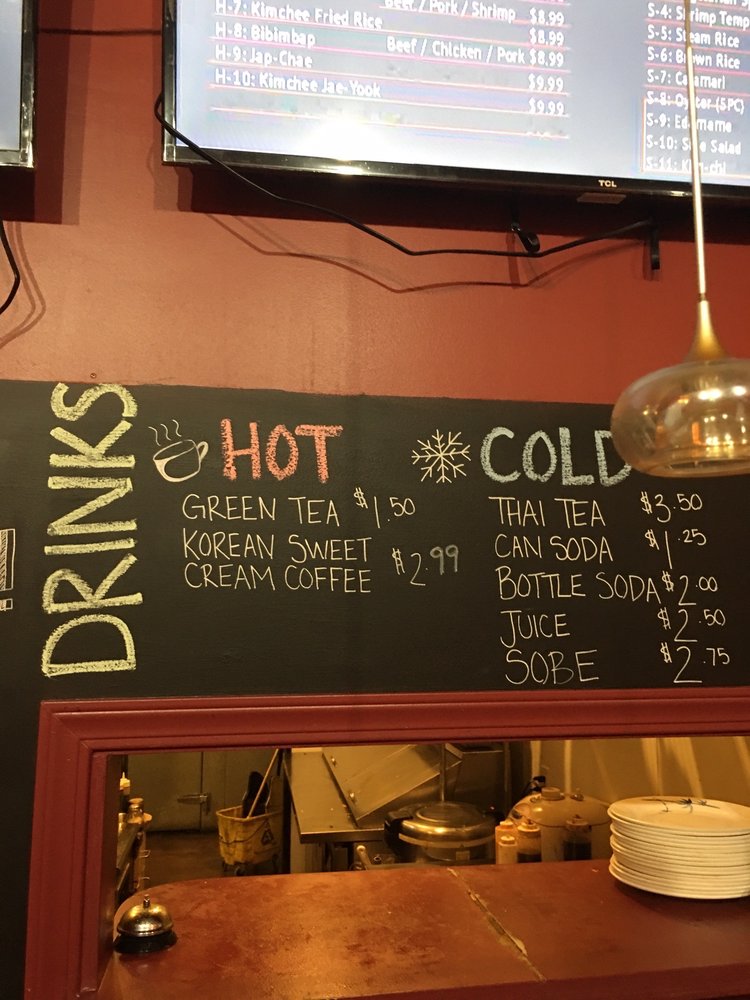 Beef / Pork / Shrimp $8.99
H-7: Kimchee Fried Rice
$8.99
H-8: Bibimbap Beef / Chicken / Pork $8.99
H-9: Jap-Chae
$9.99
H-10: Kimchee Jae-Yook
$9.99
S-4: Shrimp Temp
S-5: Steam Rice
S-6: Brown Rice
S-7: Calamari
S-8: Oyster (5PC)
S-9: Edemame
S-10: Side Salad
S-11: Kim-chi
TCL
DRINKS
HOT
GREEN TEA $1.50
KOREAN SWEET
CREAM COFFEE $2.99
COLD
THAI TEA $3.50
CAN SODA $1.25
BOTTLE SODA $2.00
JUICE $2.50
SOBE $2.75